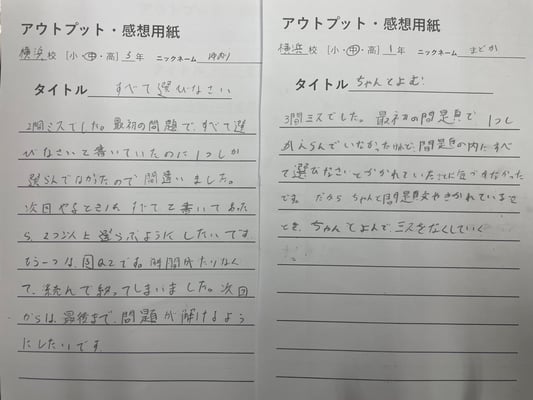 アウトプット・感想用紙
横浜校 [小・中・高] 3年 ニックネーム
タイトル すべて選びなさい
2問ミスでした。最初の問題で、すべて選
びなさいと書いていたのに1つしか
選らんでなかったので間違いました。
次回やるときは、すべてと書いてあった
ら、2つ以上選らぶようにしたいです
もう一つは、図の2です。時間がたりなく
て、読んで終ってしまいました。次回
からは、最後まで、問題が解けるよう
にしたいです。
アウトプット・感想用紙
横浜校 [小・中・高] 1年 ニックネーム まどか
タイトル ちゃんとよむ
3問ミスでした。最初の問題で1つし
かえらんでいなかったけれど、問題の内にすべ
て選びなさいとかかれていたことに気づかなかった
です。だから ちゃんと問題文やきかれているこ
とを、ちゃんとよんで、ミスをなくしていく